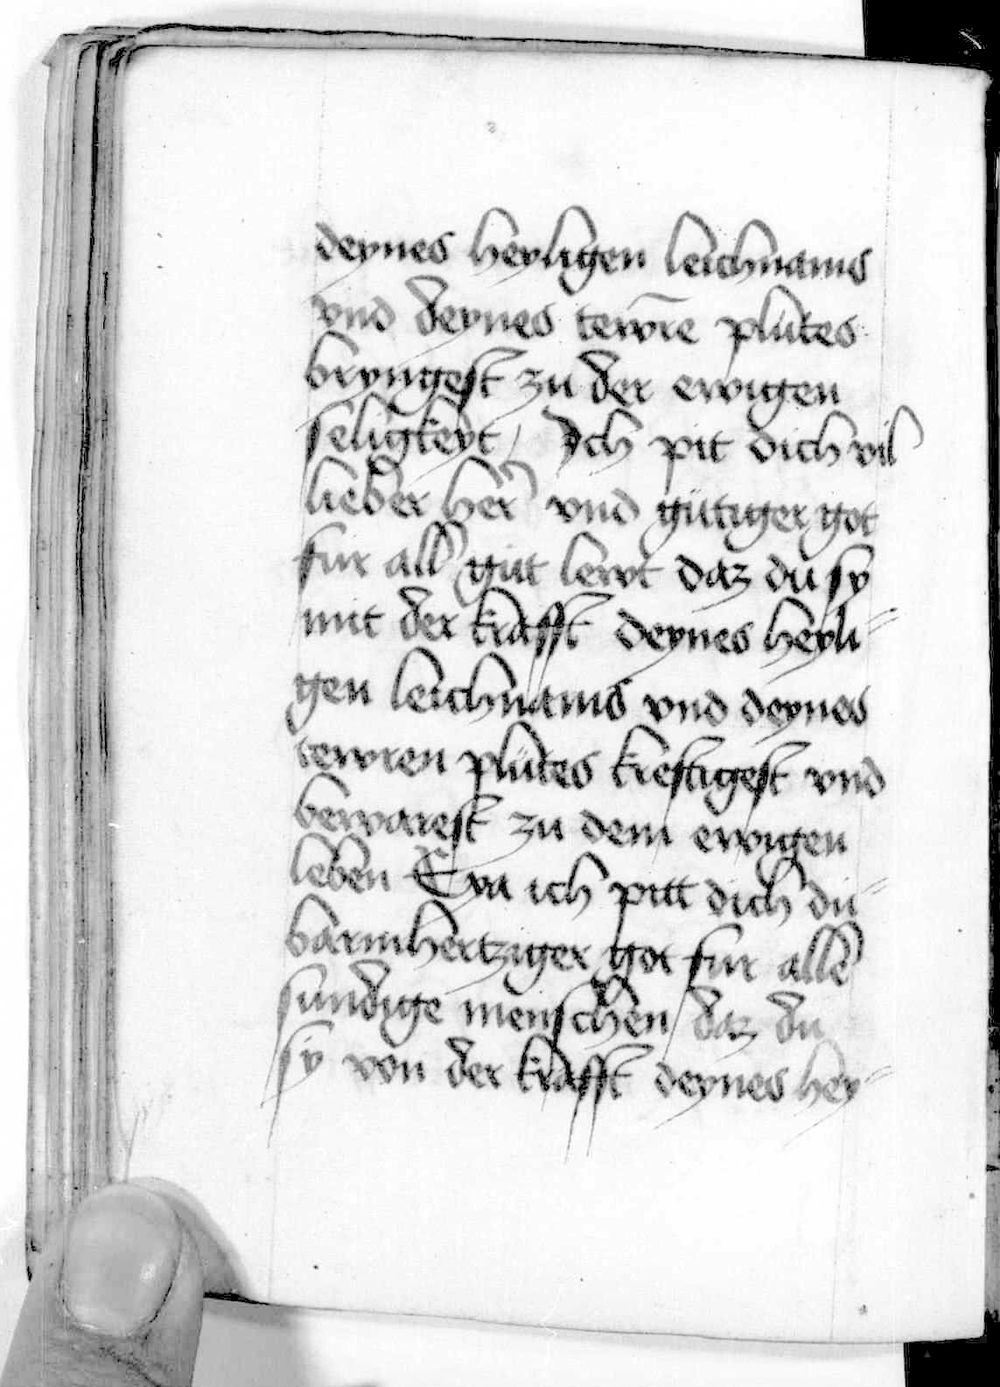 deynes heyligen leichnams
vnd deynes tewr̄e plütes
bryngest zu der ewigen
seligkeyt / Ich pit dich vil
lieber her vnd gütiger got
fur all güt lewt daz du sy
mit der krafft deynes heyli=
gen leichnams vnd deynes
tewren plütes kreftigest vnd
bewarest zu dem ewigen
leben Eya ich pitt dich du
barmhertziger got fur alle
sundige menschen / daz du
sy von der krafft deynes hey=